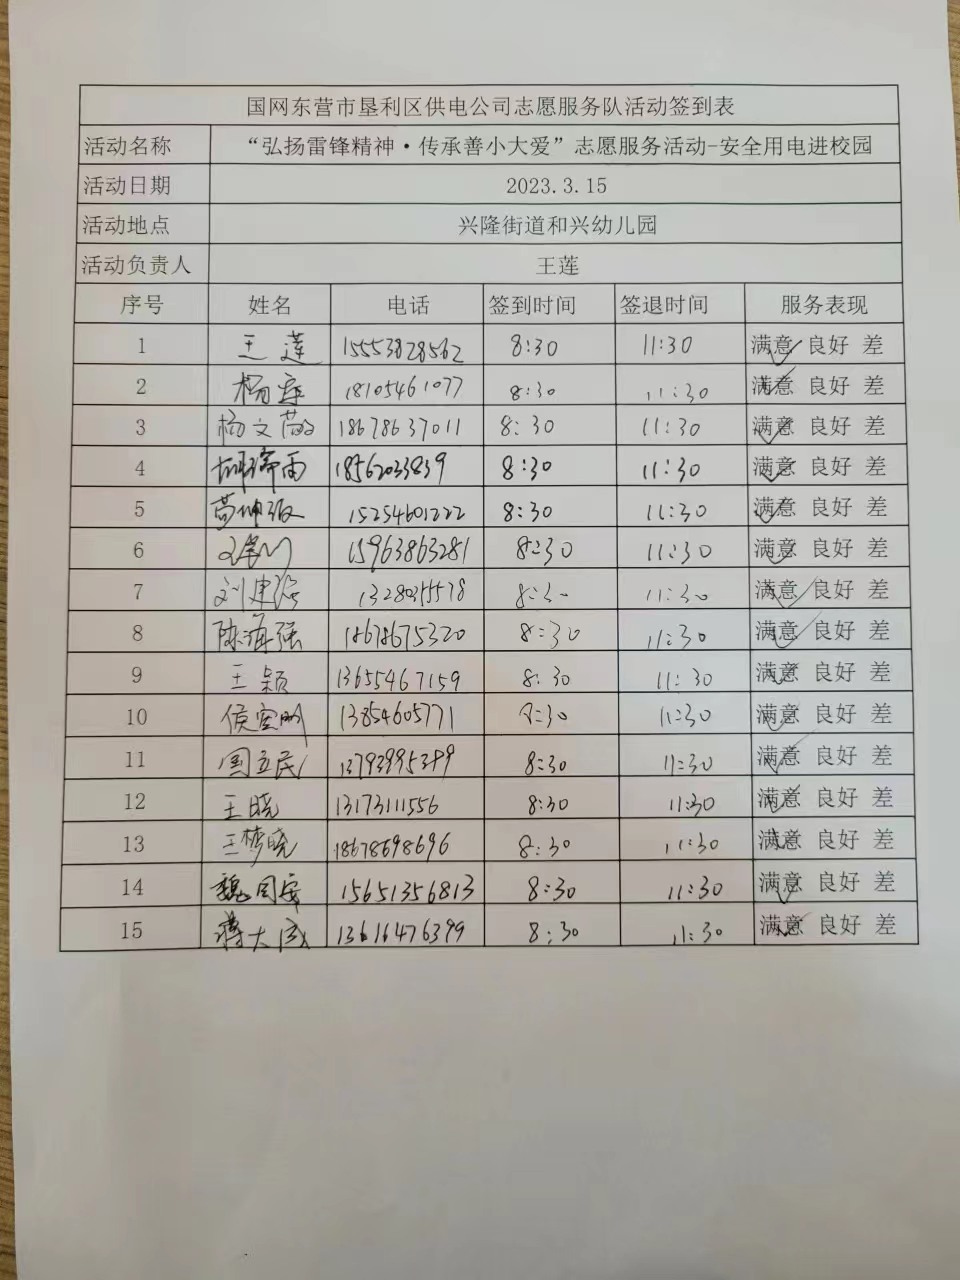 国网东营市垦利区供电公司志愿服务队活动签到表
活动名称 “弘扬雷锋精神·传承善小大爱”志愿服务活动-安全用电进校园
活动日期 2023.3.15
活动地点 兴隆街道和兴幼儿园
活动负责人 王莲
序号 姓名 电话 签到时间 签退时间 服务表现
1 王莲 15553828562 8:30 11:30 满意 良好 差
2 杨 18105461077 8:30 11:30 满意 良好 差
3 杨文 18678637011 8:30 11:30 满意 良好 差
4 18562033839 8:30 11:30 满意 良好 差
5 15254601222 8:30 11:30 满意 良好 差
6 15963863281 8:30 11:30 满意 良好 差
7 刘建 8:30 11:30 满意 良好 差
8 陈海强 18678675320 8:30 11:30 满意 良好 差
9 王颖 13655467159 8:30 11:30 满意 良好 差
10 侯 13854605771 8:30 11:30 满意 良好 差
11 国立民 13793995389 8:30 11:30 满意 良好 差
12 王晓 13173111556 8:30 11:30 满意 良好 差
13 王梦晓 18678698696 8:30 11:30 满意 良好 差
14 魏国安 15651356813 8:30 11:30 满意 良好 差
15 蒋大成 13616476399 8:30 11:30 满意 良好 差